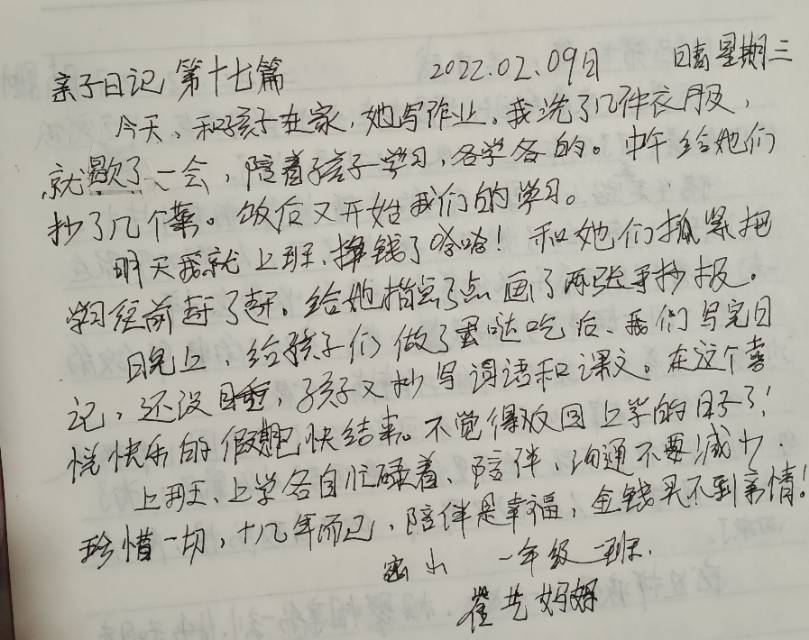 亲子日记 第十七篇 2022.02.09日 晴 星期三
今天、和孩子在家,她写作业。我洗了几件衣服,
就歇了一会,陪着孩子学习,各学各的。中午给她们
抄了几个菜。饭后又开始我们的学习。
明天我就上班、挣钱了哈哈!和她们抓紧把
学习往前赶了赶。给她指点了点画了两张手抄报。
晚上,给孩子们做了疙哒吃后、我们写完日
记,还没睡,孩子又抄写词语和课文。在这个喜
悦快乐的假期快结束。不觉得收回上学的日子了!
上班、上学各自忙碌着、陪伴、沟通不要减少.
珍惜一切,十几年而已,陪伴是幸福,金钱买不到亲情!
一年级 班.
妈妈